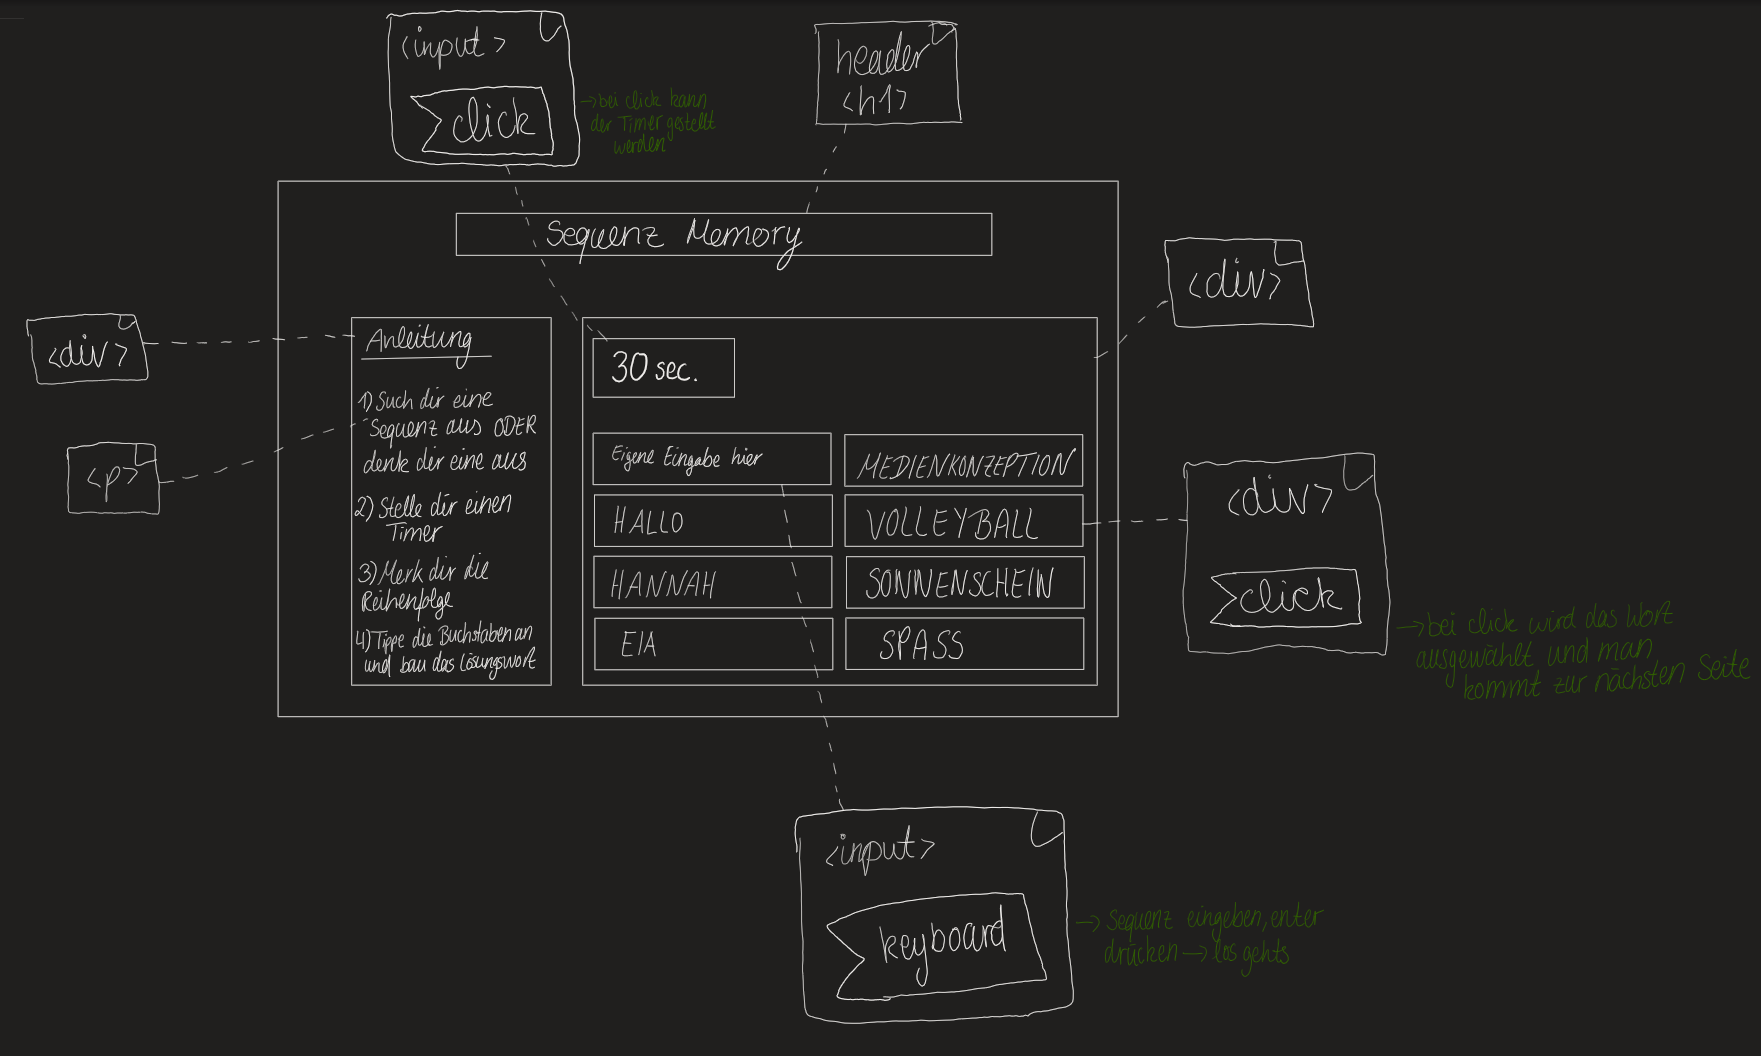 <input>
click
→bei click kann
der Timer gestellt
werden
header
<h1>
Sequenz Memory
<div>
<p>
Anleitung
1) Such dir eine
Sequenz aus ODER
denk dir eine aus
2) Stelle dir einen
Timer
3) Merk dir die
Reihenfolge
4) Tippe die Buchstaben an
und bau das Lösungswort
30 sec.
Eigene Eingabe hier
MEDIENKONZEPTION
HALLO
VOLLEYBALL
HANNAH
SONNENSCHEIN
EIA
SPASS
<div>
<div>
click
→bei click wird das Wort
ausgewählt und man
kommt zur nächsten Seite
<input>
keyboard
→ Sequenz eingeben, enter
drücken → los gehts